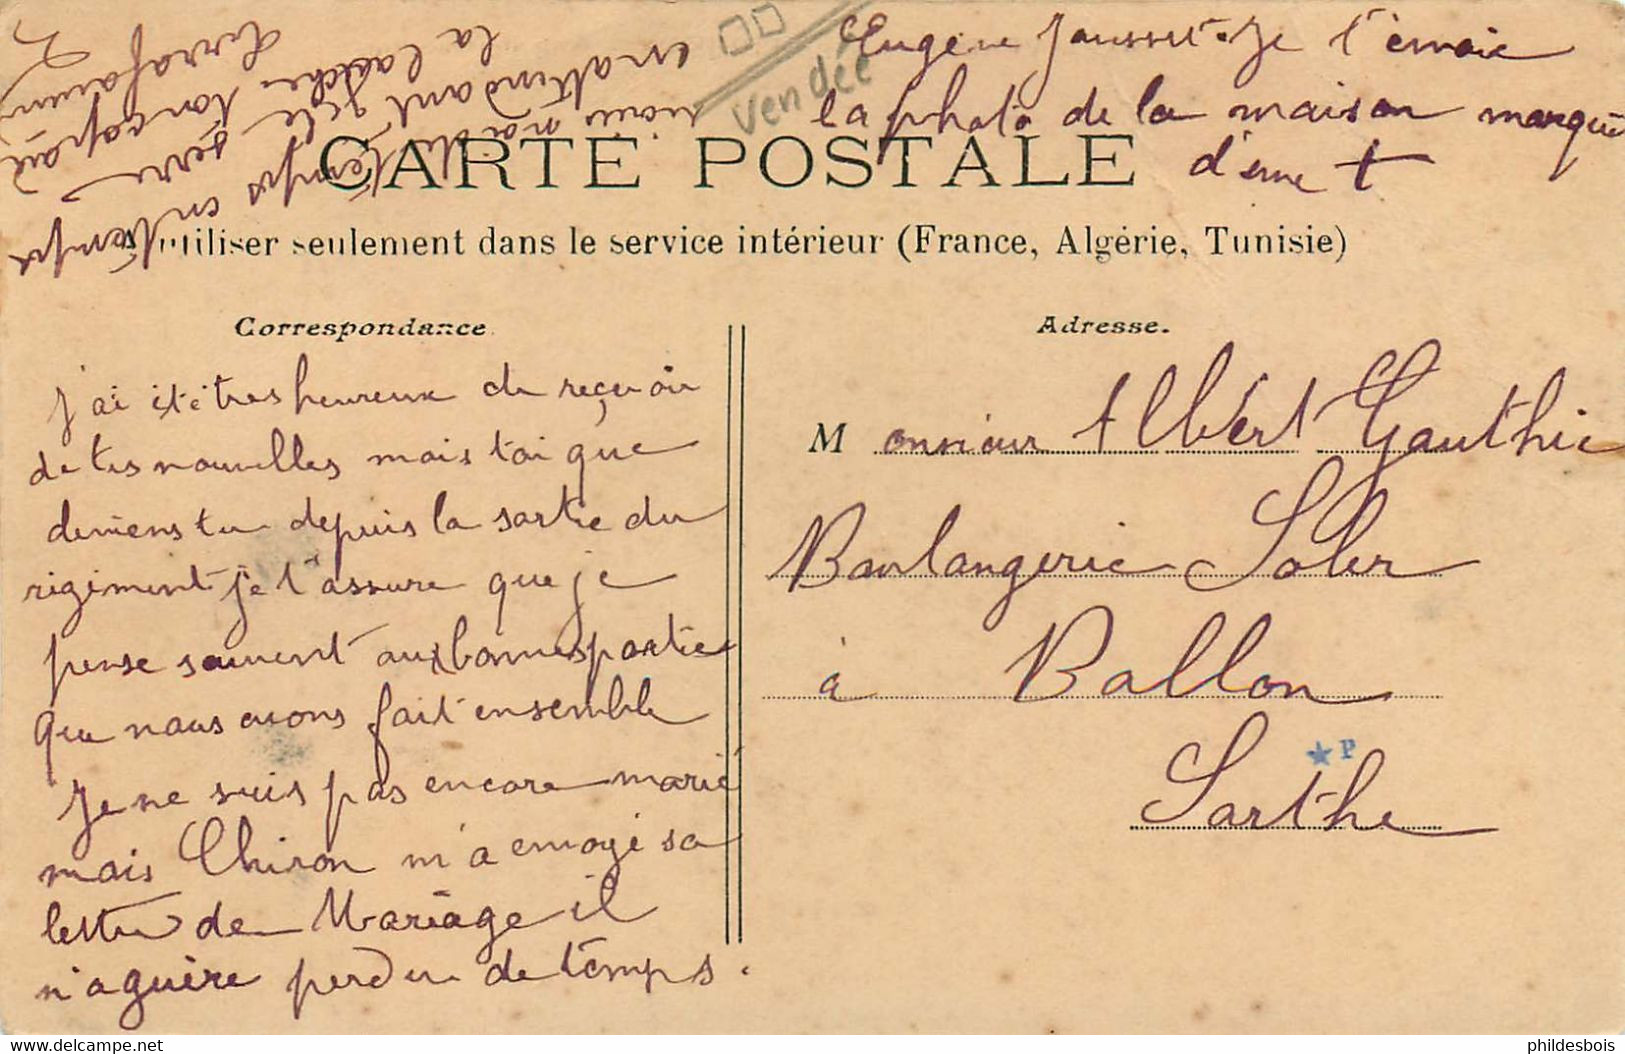 Eugène Je t'envoie
la photo de la maison marqué
d'une +
Vendée
nous
en attendant
la
CARTE POSTALE
A utiliser seulement dans le service intérieur (France, Algérie, Tunisie)
Correspondance
j'ai été très heureux de reçevoir
de tes nouvelles mais toi que
deviens tu depuis la sortie du
régiment je t'assure que je
pense souvent aux bonnes partie
que nous avons fait ensemble
Je ne suis pas encore marié
mais Chiron m'a envoyé sa
lettre de Mariage il
n'a guère perdu de temps.
Adresse.
Monsieur Albért Gauthie
Boulangerie Soler
à Ballon
P
Sarthe
philedesbois.delcampe.net
phildesbois